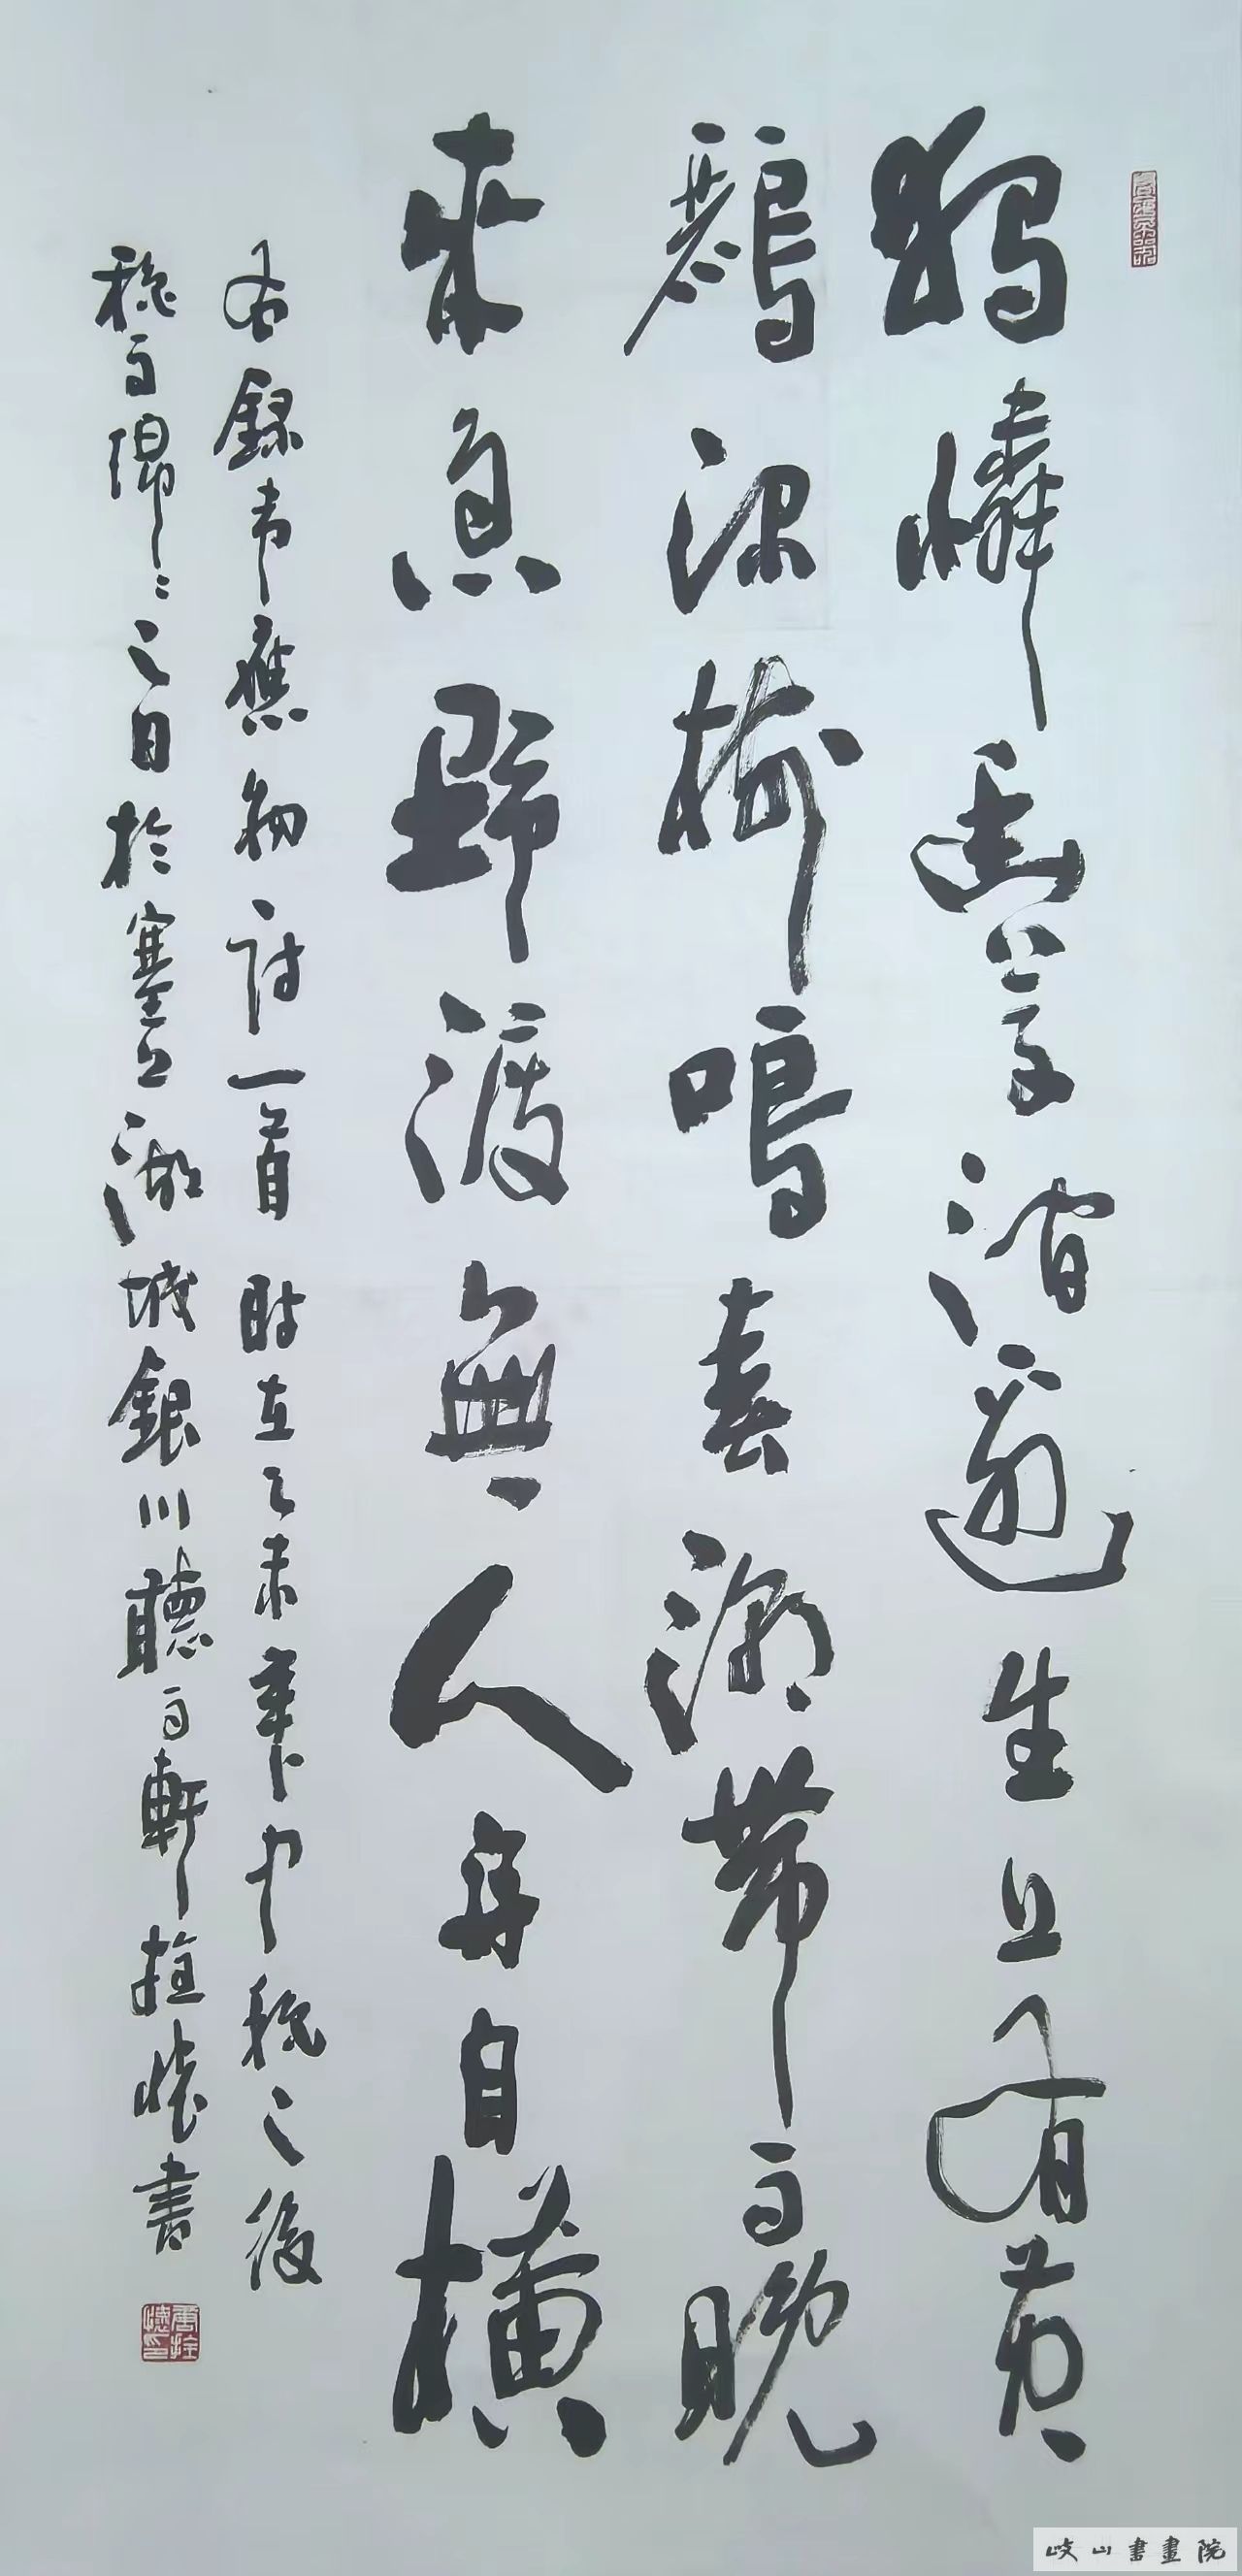 獨憐幽草澗邊生上有黃
鸝深樹鳴春潮帶雨晚
來急野渡無人舟自橫
右錄韋應物詩一首時在乙未年中秋之後
秋雨綿〻之日於塞上湖城銀川聽雨軒拴懷書
唐拴懷印
岐山書畫院